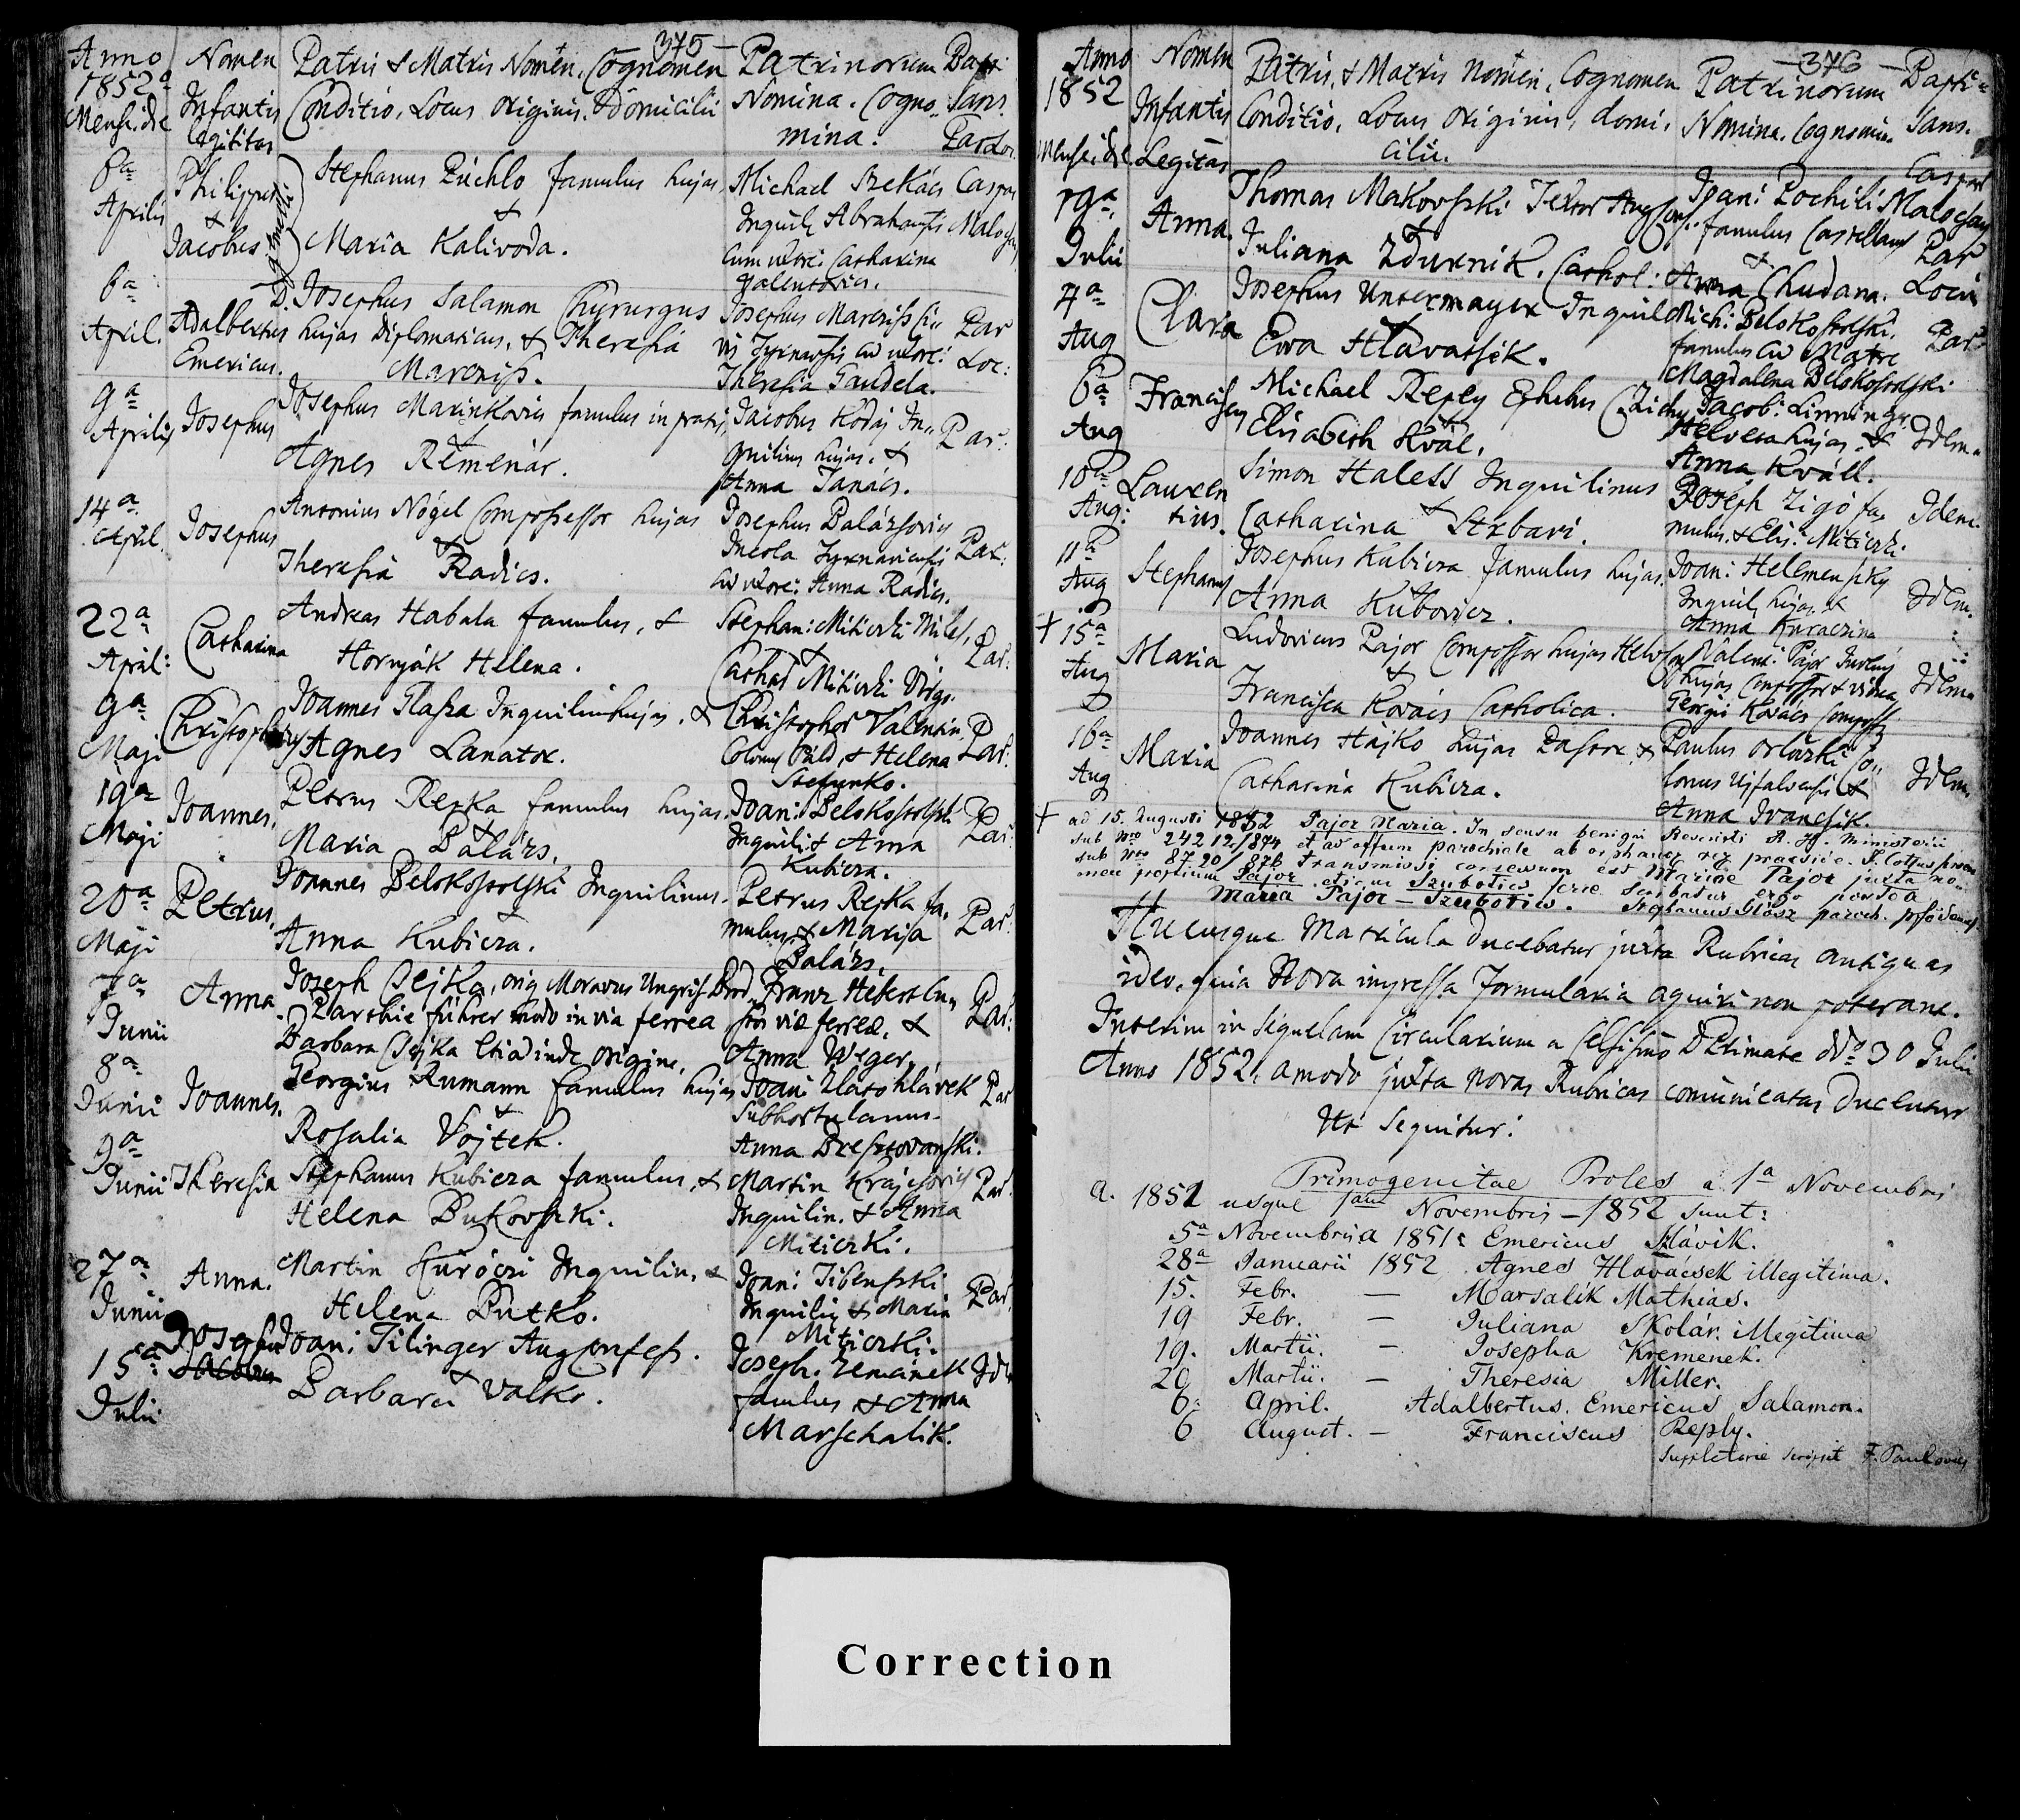 375 –
Anno 1852
Mense, die
Nomen Infantis legititas
Patris & Matris Nomen, Cognomen
Conditio, Locus originis, & domicilii
Patrinorum
Nomina. Cogno„
mina.
6a Aprilis
Philippus & Jacobus
gemelli
Stephanus Püchlo famulus hujas
&
Maria Kalivoda.
Michael Szekács
Cum uxore: Catharina
6a April.
Adalbertus Emericus.
D. Josephus Salamon Chyrurgus
hujas Diplomaticus, & Theresia
Josephus
Theresia Gandela.
Par Loc:
9a Aprilis
Josephus
Josephus Marinkovics famulus
&
Agnes Remenár.
Jacobus Kodaj In„
quilinus hujas. &
Anna Tanács.
Par:
14a April.
Josephus
Antonius Nógel Compossessor hujas
&
Theresia Radics.
Josephus Balázsovics
Incola Tyrnaviensis
cu uxore: Anna Radics.
Par:
22a April:
Catharina
Andreas Habala famulus, &
Hornyák Helena.
Stephan: Miticzki Miles, &
Cathar Miticzki Virgo.
Par:
9a Maji
Christophorus
Joannes Glasza Inquilinus hujas. &
Agnes Lanator.
Christophor Valentin,
Helena
Stefunko.
Par:
19a Maji
Joannes.
Petrus Repka famulus hujas.
&
Maria Balázs.
Joan: Belokosztolszki
Inquili: & Anna
Kubicza.
Par:
20a Maji
Petrus.
Joannes Belokosztolszki Inquilinus.
&
Anna Kubicza.
Petrus Repka fa„
mulus & Maria
Balázs.
Par:
7a Junii
Anna
Joseph Csejka, orig Moravus Ungris. Brod
Parthie führer modo in via ferrea
Barbara Csejka etia inde origine.
Franz
viæ ferreæ, &
Anna Weger,
Par:
8a Junii
Joannes.
Georgius Rumann famulus hujas
&
Rosalia Vojtek.
Joan: Zlatohlávek
Subhortulanus.
Anna Dresztovanszki.
Par
9a Junii
Theresia
Stephanus Kubicza famulus, &
Helena Bukovszki.
Martin Krajcsovics
Inquilin. & Anna
Miticzki.
Par:
27a Junii
Anna.
Martin Huróczi Inquilin. &
Helena Butko.
Joan: Tibenszki
Inquilin & Maria
Miticzki.
Par:
15a Julii
Josephus
Joan: Tilinger Aug Confess.
&
Barbara Valko.
Joseph. Zemánek
famulus & Anna
Marschalik.
– 376 –
Anno 1852
Mense, die
Nomen Infantis Legitas
Patris, & Matris Nomen, Cognomen
Conditio, Locus originis, domi„
cilii.
Patrinorum
Nomina. Cognomin.
19a Julii
Anna
Thomas Makovszki Textor Aug Conf.
&
Juliana Zdurnik. Cathol:
Joan: Pochili
famulus Castellanus
&
Anna Chudana.
Par Loci
4a Aug
Clara
Josephus Untermayer Inquil
&
Ewa Hlavatsik.
Mich: Belokosztolszki.
famulus cu Matre
Magdalena Belokosztolszki
Par:
6a Aug
Franciscus
Michael Reply Ephebus C. Zichy
&
Elisabeth Kvál.
Jacob: Linninger
Helveta hujas. &
Anna Kváll.
Idem.
10a Aug:
Lauren tius.
Simon Haless Inquilinus
&
Catharina Strbavi.
Joseph Zigó fa„
mulus. & Elis: Miticzki.
Idem.
11a Aug
Stephanus
Josephus Kubicza famulus hujas.
&
Anna Kubovicz.
Joan: Helemenszky
Inquil. hujas. &
Anna Kuraczina
Idem.
+ 15a Aug
Maria
Ludovicus Pajor Compossor hujas Helv Conf
&
Francisca Kovács Catholica.
Valent: Pajor
hujas Compossor & vidua
Georgii Kovács Composs.
Idem.
16a Aug
Maria
Joannes Hajko hujas Pastor. &
Catharina Kubicza.
Paulus Orlázki Co„
lonus Ujfaluensis &
Anna Ivancsik.
Idem.
+ ad 15. Augusti 1852 Pajor Maria. In sensu benigni Rescripti R. H. Ministerii
sub Nro 24212./874 et ad offium parochiale ab
sub Nro 8720/876 transmissi concessum est Mariæ Pajor juxta no„
men proprium Pajor etiam Szubotics ferre scribatur ergo postea
Maria Pajor – Szubotics. Stephanus Glósz paroch.
Hucusque Matricula ducebatur juxta Rubricas antiquas
ideo, quia Nova impressa Formularia aquiri non poterant.
Interim in Sequelam Circularium a Celsissmo D Primate ddo 30 Julii
Anno 1852. amodo juxta novas Rubricas comunicatas Ducentur
Ut Sequitur:
Primogenitae Proles a 1a Novembris
a. 1851 usque 1am Novembris – 1852 sunt:
5a Novembris a 1851: Emericus Slávik.
28a Januarii 1852 Agnes Hlavácsek illegitima.
15. Febr. — Marsalik Mathias.
19 Febr. — Juliana Skolár. illegitima
19. Martii. — Josepha Kremenek.
20 Martii. — Theresia Miller.
6. April. Adalbertus. Emericus Salamon.
6 August. — Franciscus Reply.
Suppletorie scripsit F. Paulovics
Correction